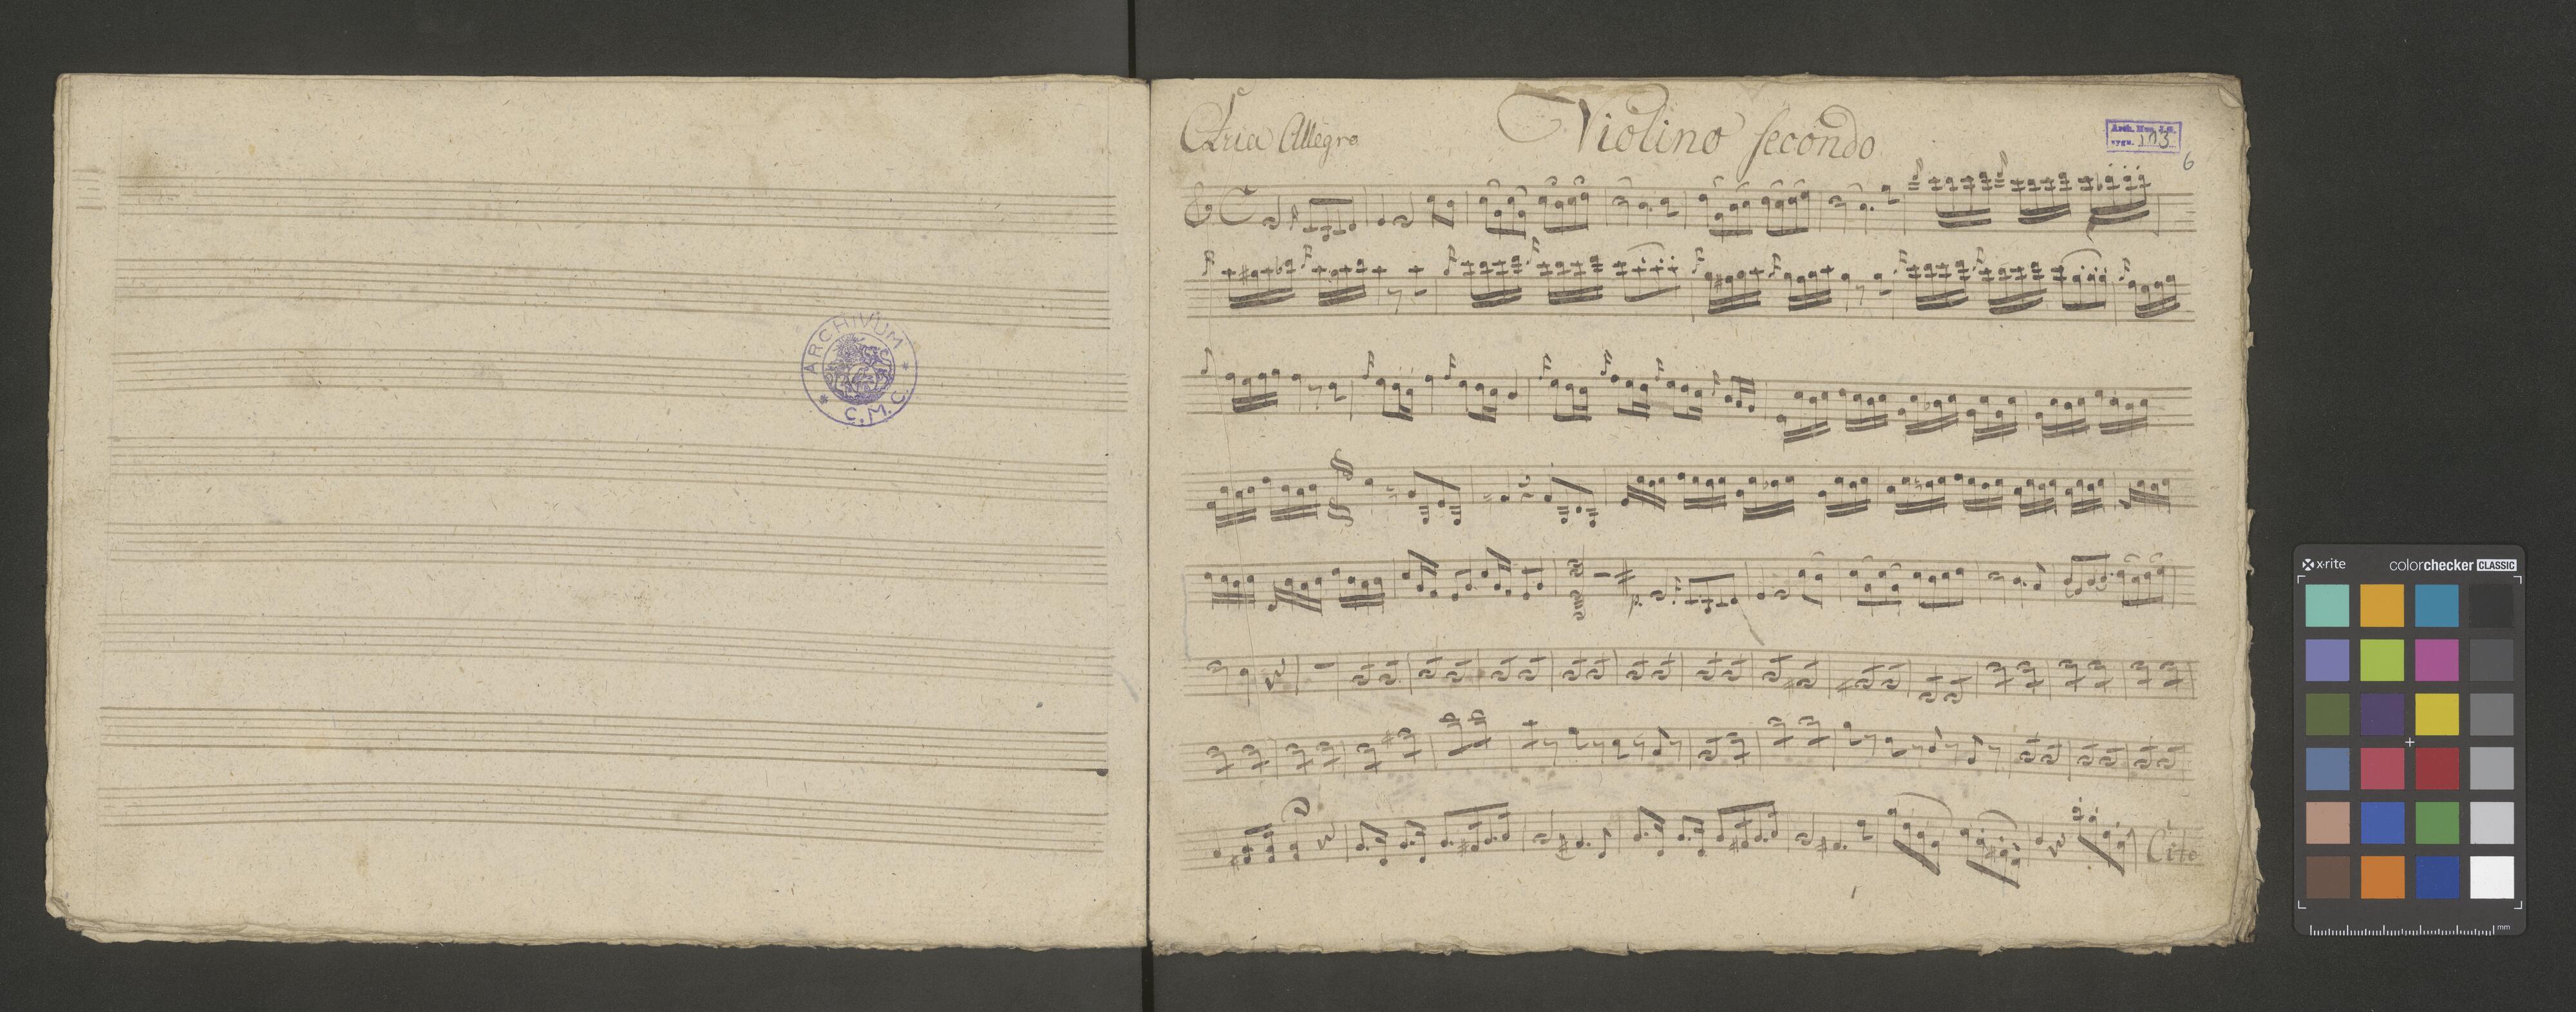 ARCHIVUM
C.M.C.
Aria Allegro
Violino secondo
Arch. Mus. J.G.
sygn. 103
6
Cito
x·rite
colorchecker CLASSIC
mm